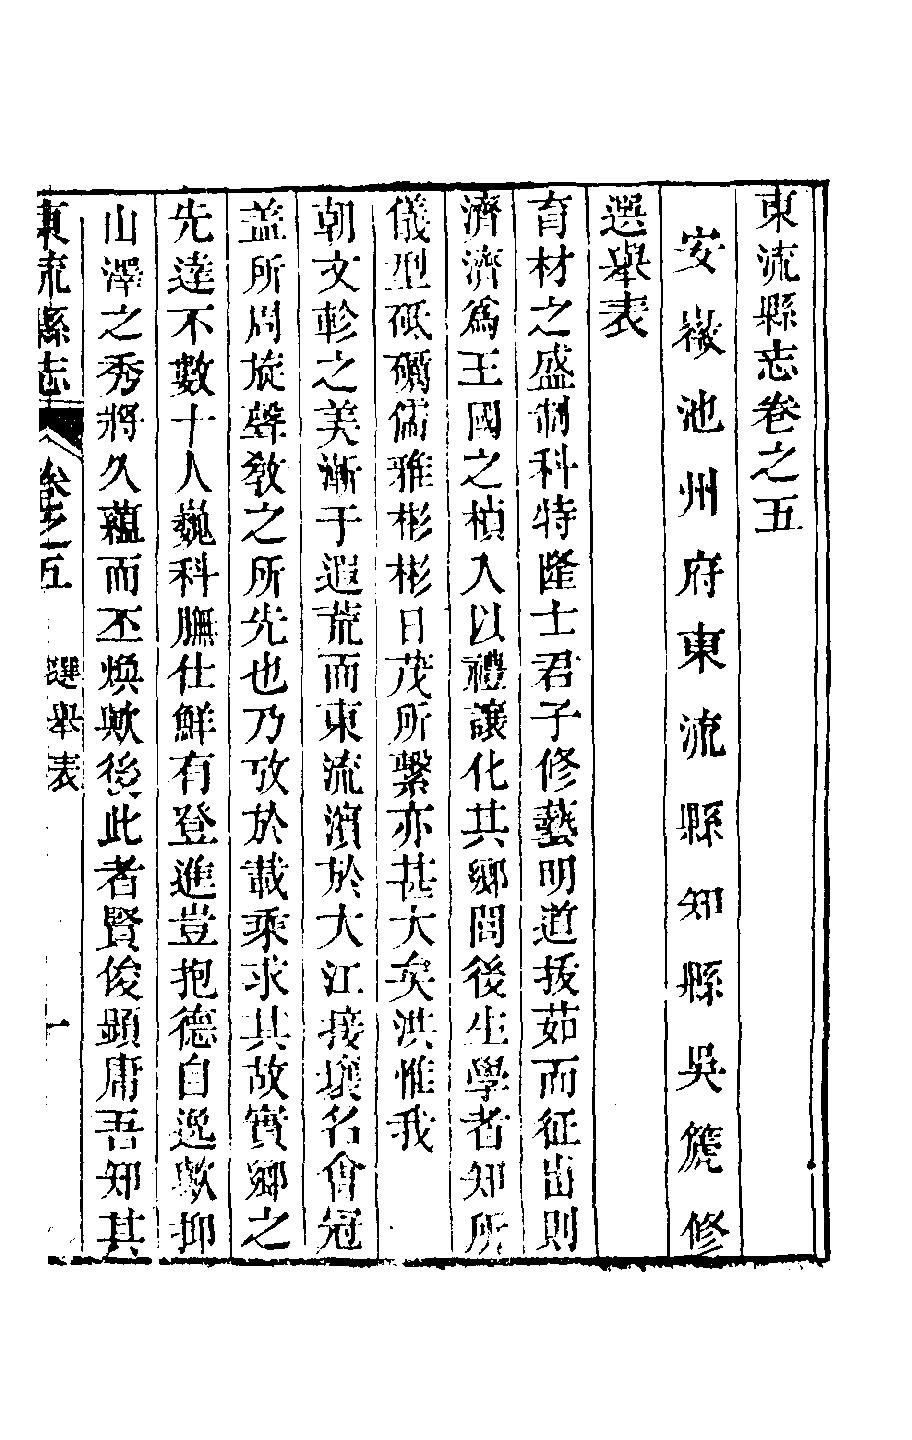 東流縣志卷之五
安徽池州府東流縣知縣吳篪修
選舉表
育材之盛制科特隆士君子修藝明道拔茹而征出則
濟濟爲王國之楨入以禮讓化其鄉閭後生學者知所
儀型砥礪儒雅彬彬日茂所繫亦甚大矣洪惟我
朝文軫之美漸于遐荒而東流濱於大江接壤名會冠
盖所周旋聲敎之所先也乃攷於載乘求其故實鄉之
先達不數十人巍科膴仕鮮有登進豈抱德自逸歟抑
山澤之秀將久蘊而丕煥歟後此者賢俊顯庸吾知其
東流縣志 卷之五 選舉表 一